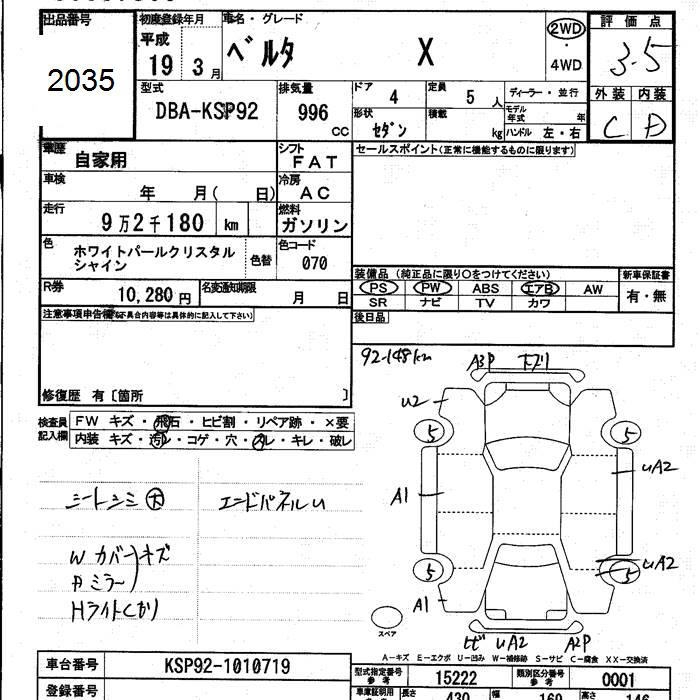 出品番号
2035
初度登録年月
平成
19 3月
車名・グレード
ベルタ X
2WD
・
4WD
評価点
3.5
外装 内装
C D
型式
DBA-KSP92
排気量
996
CC
ドア
4
定員
5人
ディーラー・並行
形状
セダン
積載
kg
モデル年式 年
ハンドル 左・右
車歴
自家用
シフト
FAT
車検
年 月( 日)
冷房
AC
走行
9万2千180 km
燃料
ガソリン
色
ホワイトパールクリスタル
シャイン
色替
色コード
070
R券
10,280円
名変通知期限
月 日
セールスポイント(正常に機能するものに限ります)
装備品 (純正品に限り○をつけてください)
PS PW ABS エアB AW
SR ナビ TV カワ
新車保証書
有・無
後日品
注意事項申告欄(不具合内容等は具体的に記入して下さい)
修復歴 有〔箇所 〕
検査員
記入欄
FW キズ・飛石・ヒビ割・リペア跡・×要
内装 キズ・汚レ・コゲ・穴・スレ・キレ・破レ
シートシミ大
エンドパネルu
W カバー キズ
P ミラー
Hライトくもり
92-148km
A3P
u2
5
5
A1
uA2
5
uA2
5
A1
スペア
uA2
A2P
A-キズ E-エクボ U-凹み W-補修跡 S-サビ C-腐食 XX-交換済
車台番号
KSP92-1010719
登録番号
型式指定番号
参考
15222
類別区分番号
参考
0001
車庫証明用
長さ
430
幅
160
高さ
146